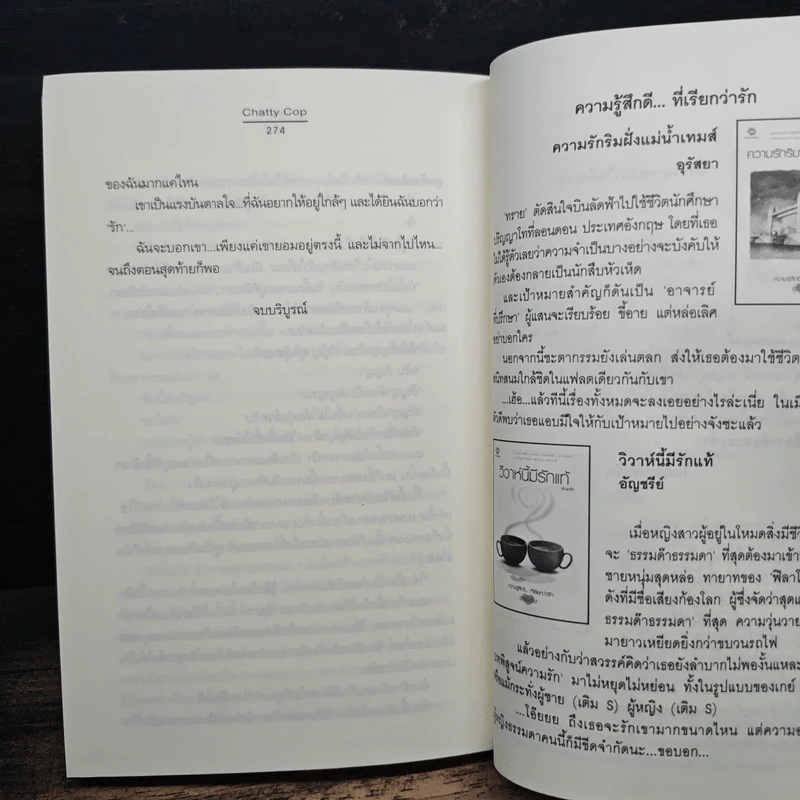 Chatty Cop
274
ของฉันมากแค่ไหน
เขาเป็นแรงบันดาลใจ...ที่ฉันอยากให้อยู่ใกล้ๆ และได้ยินฉันบอกว่า
'รัก'...
ฉันจะบอกเขา...เพียงแค่เขายอมอยู่ตรงนี้ และไม่จากไปไหน...
จนถึงตอนสุดท้ายก็พอ
จบบริบูรณ์
ความรู้สึกดี... ที่เรียกว่ารัก
ความรักริมฝั่งแม่น้ำเทมส์
อุรัสยา
ความรักริม
ทราย' ตัดสินใจบินลัดฟ้าไปใช้ชีวิตนักศึกษา
ปริญญาโทที่ลอนดอน ประเทศอังกฤษ โดยที่เธอ
ไม่ได้รู้ตัวเลยว่าความจำเป็นบางอย่างจะบังคับให้
ตัวเองต้องกลายเป็นนักสืบหัวเห็ด
และเป้าหมายสำคัญก็ดันเป็น 'อาจารย์
ที่ปรึกษา' ผู้แสนจะเรียบร้อย ขี้อาย แต่หล่อเลิศ
อย่าบอกใคร
นอกจากนี้ชะตากรรมยังเล่นตลก ส่งให้เธอต้องมาใช้ชีวิต
สนิทสนมใกล้ชิดในแฟลตเดียวกันกับเขา
...เฮ้อ...แล้วทีนี้เรื่องทั้งหมดจะลงเอยอย่างไรล่ะเนี่ย ในเมื่
ตัวดีพบว่าเธอแอบมีใจให้กับเป้าหมายไปอย่างจังซะแล้ว
วิวาห์นี้มีรักแท้
วิวาห์นี้มีรักแท้
อัญชรีย์
เมื่อหญิงสาวผู้อยู่ในโหมดสิ่งมีชี
จะ 'ธรรมด๊าธรรมดา' ที่สุดต้องมาเข้า
ชายหนุ่มสุดหล่อ ทายาทของ 'ฟิลา
ดังที่มีชื่อเสียงก้องโลก ผู้ซึ่งจัดว่าสุดแ
ธรรมด๊าธรรมดา' ที่สุด ความวุ่นวาย
มายาวเหยียดยิ่งกว่าขบวนรถไฟ
แล้วอย่างกับว่าสวรรค์คิดว่าเธอยังลำบากไม่พองั้นแหละ
พิสูจน์ความรัก' มาไม่หยุดไม่หย่อน ทั้งในรูปแบบของเกย์
หรือแม้กระทั่งผู้ชาย (เติม S) ผู้หญิง (เติม S)
...โอ๊ยยย ถึงเธอจะรักเขามากขนาดไหน แต่ความอ
ผู้หญิงธรรมดาคนนี้ก็มีขีดจำกัดนะ...ขอบอก...